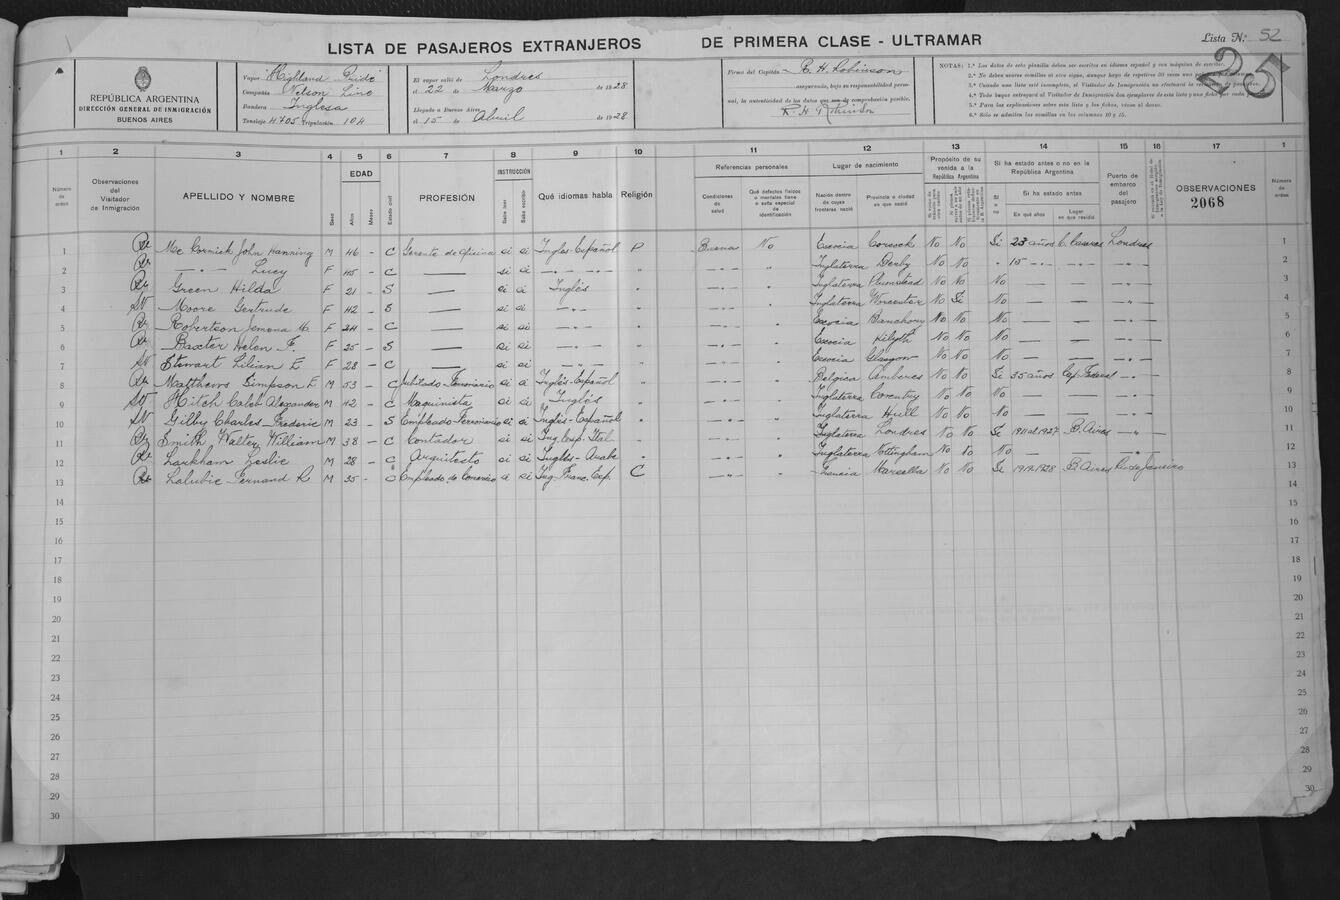 LISTA DE PASAJEROS EXTRANJEROS DE PRIMERA CLASE - ULTRAMAR
Lista N.º 52
25
REPÚBLICA ARGENTINA
DIRECCIÓN GENERAL DE INMIGRACIÓN
BUENOS AIRES
Vapor Highland Pride
Compañía Nelson Line
Bandera Inglesa
Tonelaje 4705 Tripulación 104
El vapor salió de Londres
el 22 de Marzo de 1928
Llegado a Buenos Aires
el 15 de Abril de 1928
Firma del Capitán R. H. Robinson
asegurando, bajo su responsabilidad personal, la autenticidad de los datos que son de comprobación posible.
NOTAS: 1.ª Los datos de esta planilla deben ser escritos en idioma español y con máquina de escribir.
1 2 3 4 5 6 7 8 9 10 11 12 13 14 15 16 17 1
Número de orden
Observaciones del Visitador de Inmigración
APELLIDO Y NOMBRE
Sexo
EDAD
Años
Meses
Estado civil
PROFESIÓN
INSTRUCCIÓN
Sabe leer
Sabe escribir
Qué idiomas habla
Religión
Referencias personales
Condiciones de salud
Qué defectos físicos o mentales tiene o seña especial de identificación
Lugar de nacimiento
Nación dentro de cuyas fronteras nació
Provincia o ciudad en que nació
Propósito de su venida a la República Argentina
Si ha estado antes o no en la República Argentina
Si ha estado antes
En qué años
Lugar en que residió
Puerto de embarco del pasajero
OBSERVACIONES
2068
Número de orden
1 Mc Cormick John Hanning M 46 - C Gerente de oficina si si Inglés-Español P Buena No Escocia No No Si 23 años C. Caseros Londres 1
2 — " — Lucy F 45 - C — si si — " — " Inglaterra Derby No No " 15 — " — 2
3 Green Hilda F 21 - S — si si Inglés " Inglaterra Plumstead No No No — — — " — 3
4 Moore Gertrude F 42 - S — si si — " — " Inglaterra Worcester No Si No — — — " — 4
5 Robertson Jemona M. F 24 - C — si si — " — " Escocia Banchory No No No — — — " — 5
6 Baxter Helen F. F 25 - S — si si — " — " Escocia Kilsyth No No No — — — " — 6
7 Stewart Lilian E F 28 - C — si si — " — " Escocia Glasgow No No No — — — " — 7
8 Matthews Simpson E M 53 - C Jubilado Ferroviario si si Inglés-Español " Belgica Amberes No No Si 35 años Cap. Federal — " — 8
9 Hitch Caleb Alexander M 42 - C Maquinista si si Inglés " Inglaterra Coventry No No No — — — " — 9
10 Gilby Charles Frederic M 23 - S Empleado Ferroviario si si Inglés-Español " Inglaterra Hull No No No — — — " — 10
11 Smith Walter William M 38 - C Contador si si Ing. Esp. Ital. " Inglaterra Londres No No Si 1911 al 1927 B. Aires — " — 11
12 Larkham Leslie M 28 - C Arquitecto si si Inglés-Arabe " Inglaterra Nottingham No No No — — — " — 12
13 Lalubie Fernand R M 35 - C Empleado de Comercio si si Ing. Franc. Esp. C Francia Marsella No No Si 1919-1928 B Aires Rio de Janeiro 13
14 14
15 15
16 16
17 17
18 18
19 19
20 20
21 21
22 22
23 23
24 24
25 25
26 26
27 27
28 28
29 29
30 30